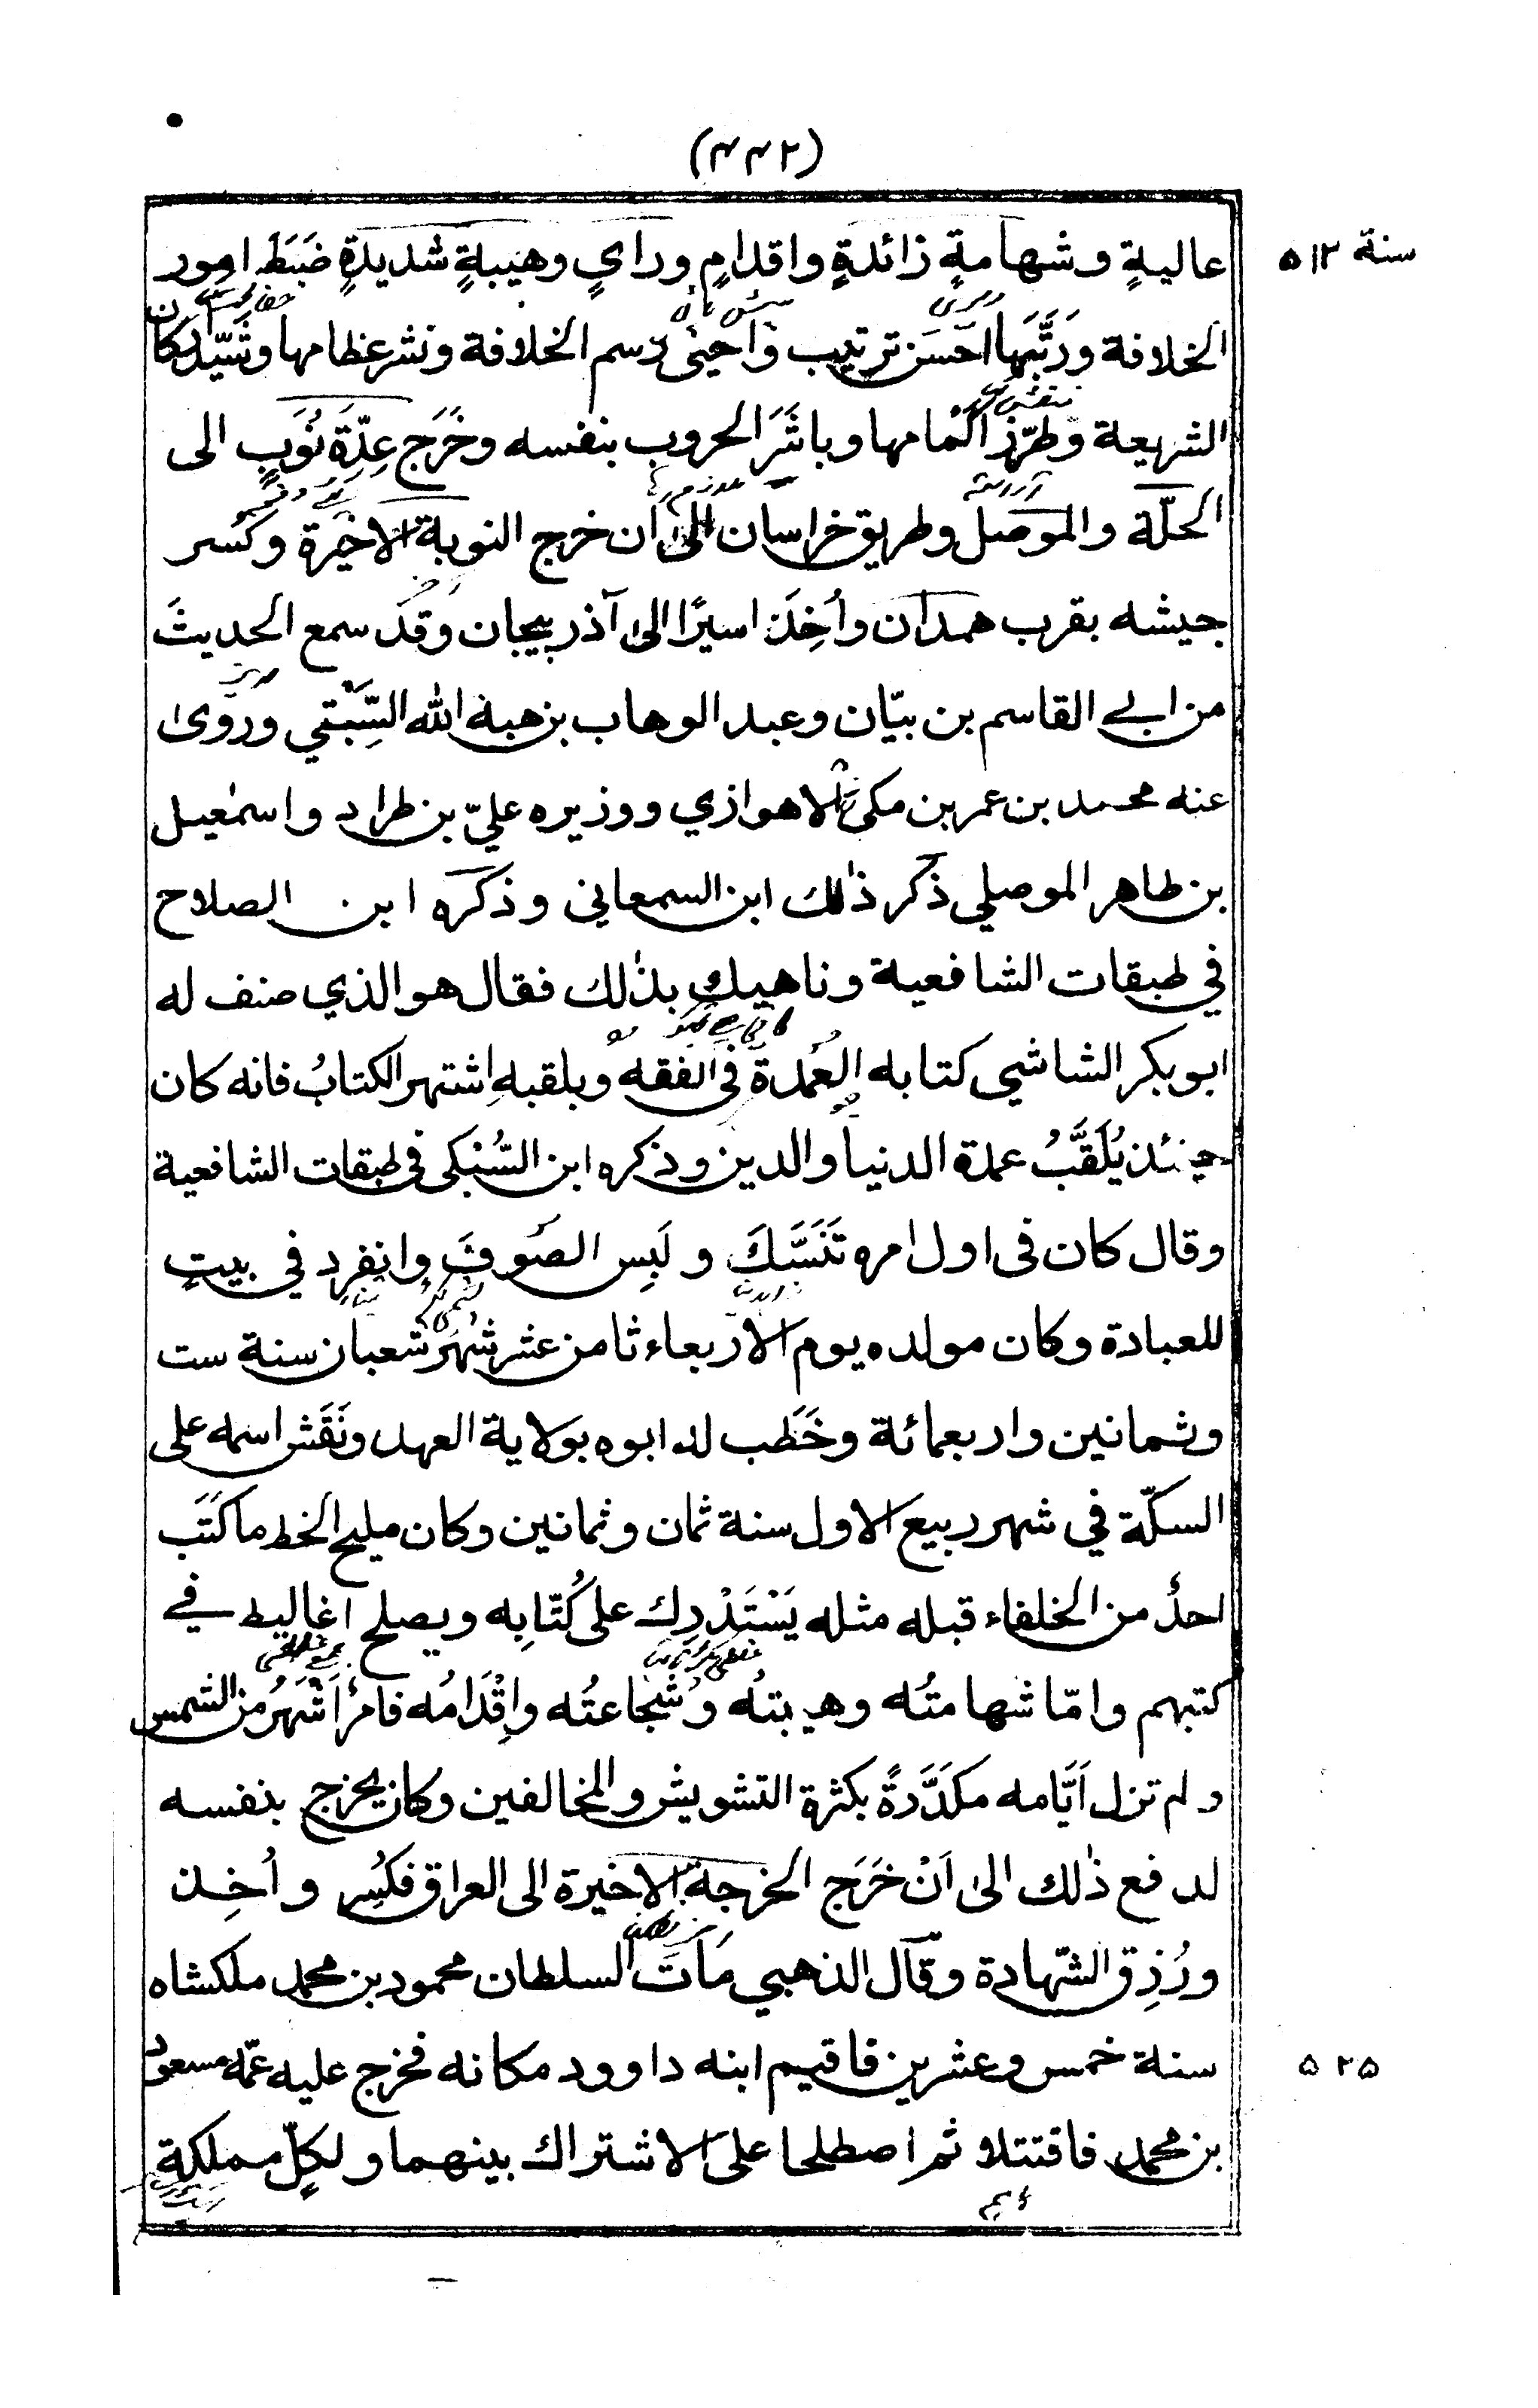 (۴۴۲)
سنة ۵۱۲
عاليةٍ وشهامةٍ زائدةٍ واقدامٍ ورايٍ وهَيبةٍ شديدةٍ ضَبَطَ امور
الخلافة ورَتَّبَها احسَن ترتيب واحيیٰ رسم الخلافة ونشر عظامها وشَيّد اركان
الشريعة وطرّز اكمامها وباشَرَ الحروب بنفسه وخَرَج عِدّةَ نُوَبٍ الى
الحلّة والموصل وطريق خراسان الىٰ اَن خرج النوبة الاخيرة وكُسر
جيشه بقرب همدان واُخِذَ اسيرًا الىٰ آذربيجان وقد سمع الحديثَ
من ابي القاسم بن بيّان وعبد الوهاب بن هبة الله السِّبْتي وروىٰ
عنه محمد بن عمر بن مكى الاهوازي ووزيره عليّ بن طراد واسمٰعيل
بن طاهر الموصلي ذكر ذٰلك ابن السمعاني وذكره ابن الصلاح
في طبقات الشافعية وناهيك بذٰلك فقال هو الذي صنف له
ابو بكر الشاشي كتابه العُمدة في الفقه وبلقبهِ اشتهر الكتابُ فانه كان
حينئذ يُلَقَّبُ عمدة الدنيا والدين وذكره ابن السُّبكى في طبقات الشافعية
وقال كان فى اول امره تَنَسَّكَ ولَبِس الصوفَ وانفرد في بيتٍ
للعبادة وكان مولده يوم الاربعاء ثامن عشر شهر شعبان سنة ست
وثمانين واربعمائة وخَطَب له ابوه بولاية العهد ونَقَش اسمه على
السكّة في شهر ربيع الاول سنة ثمان وثمانين وكان مليح الخط ما كَتَب
احدٌ من الخلفاء قبله مثله يَسْتَدْرِك على كُتّابِه ويصلح اغاليط في
كتبهم وامّا شهامتُه وهيبتُه وشُجاعتُه واِقْدَامُه فامرٌ اَشْهَرُ من الشمس
ولم تزل اَيَّامه مكدَّرةً بكثرة التشويش والمخالفين وكان يخرج بنفسه
لدفع ذٰلك الىٰ اَنْ خَرَج الخرجة الاخيرة الى العراق فكُسِر واُخِذ
ورُزِق الشهادة وقال الذهبي مَاتَ السلطان محمود بن محمد ملكشاه
سنة خمس وعشرين فاقيم ابنه داوود مكانه فخرج عليه عمّه مسعود
۵۲۵
بن محمد فاقتتلا ثم اصطلحا على الاشتراك بينهما ولكلٍّ مملكة